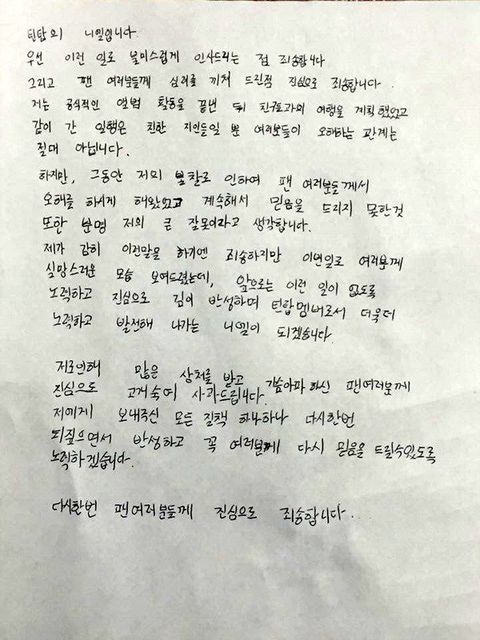 틴탑의 니엘입니다.
우선 이런 일로 불미스럽게 인사드리는 점 죄송합니다
그리고 팬 여러분들께 심려를 끼쳐 드린점 진심으로 죄송합니다.
저는 공식적인 앨범 활동을 끝낸 뒤 친구들과의 여행을 계획했었고
같이 간 일행은 친한 지인들일 뿐 여러분들이 오해하는 관계는
절대 아닙니다.
하지만, 그동안 저의 불찰로 인하여 팬 여러분들께서
오해를 하시게 해왔었고 계속해서 믿음을 드리지 못한것
또한 분명 저의 큰 잘못이라고 생각합니다.
제가 감히 이런말을 하기엔 죄송하지만 이번일로 여러분께
실망스러운 모습 보여드렸는데, 앞으로는 이런 일이 없도록
노력하고 진심으로 깊이 반성하며 틴탑멤버로서 더욱더
노력하고 발전해 나가는 니엘이 되겠습니다
저로인해 많은 상처를 받고 가슴아파하신 팬여러분께
진심으로 고개숙여 사과드립니다.
저에게 보내주신 모든 질책 하나하나 다시한번
되짚으면서 반성하고 꼭 여러분께 다시 믿음을 드릴수있도록
노력하겠습니다.
다시한번 팬여러분들께 진심으로 죄송합니다...